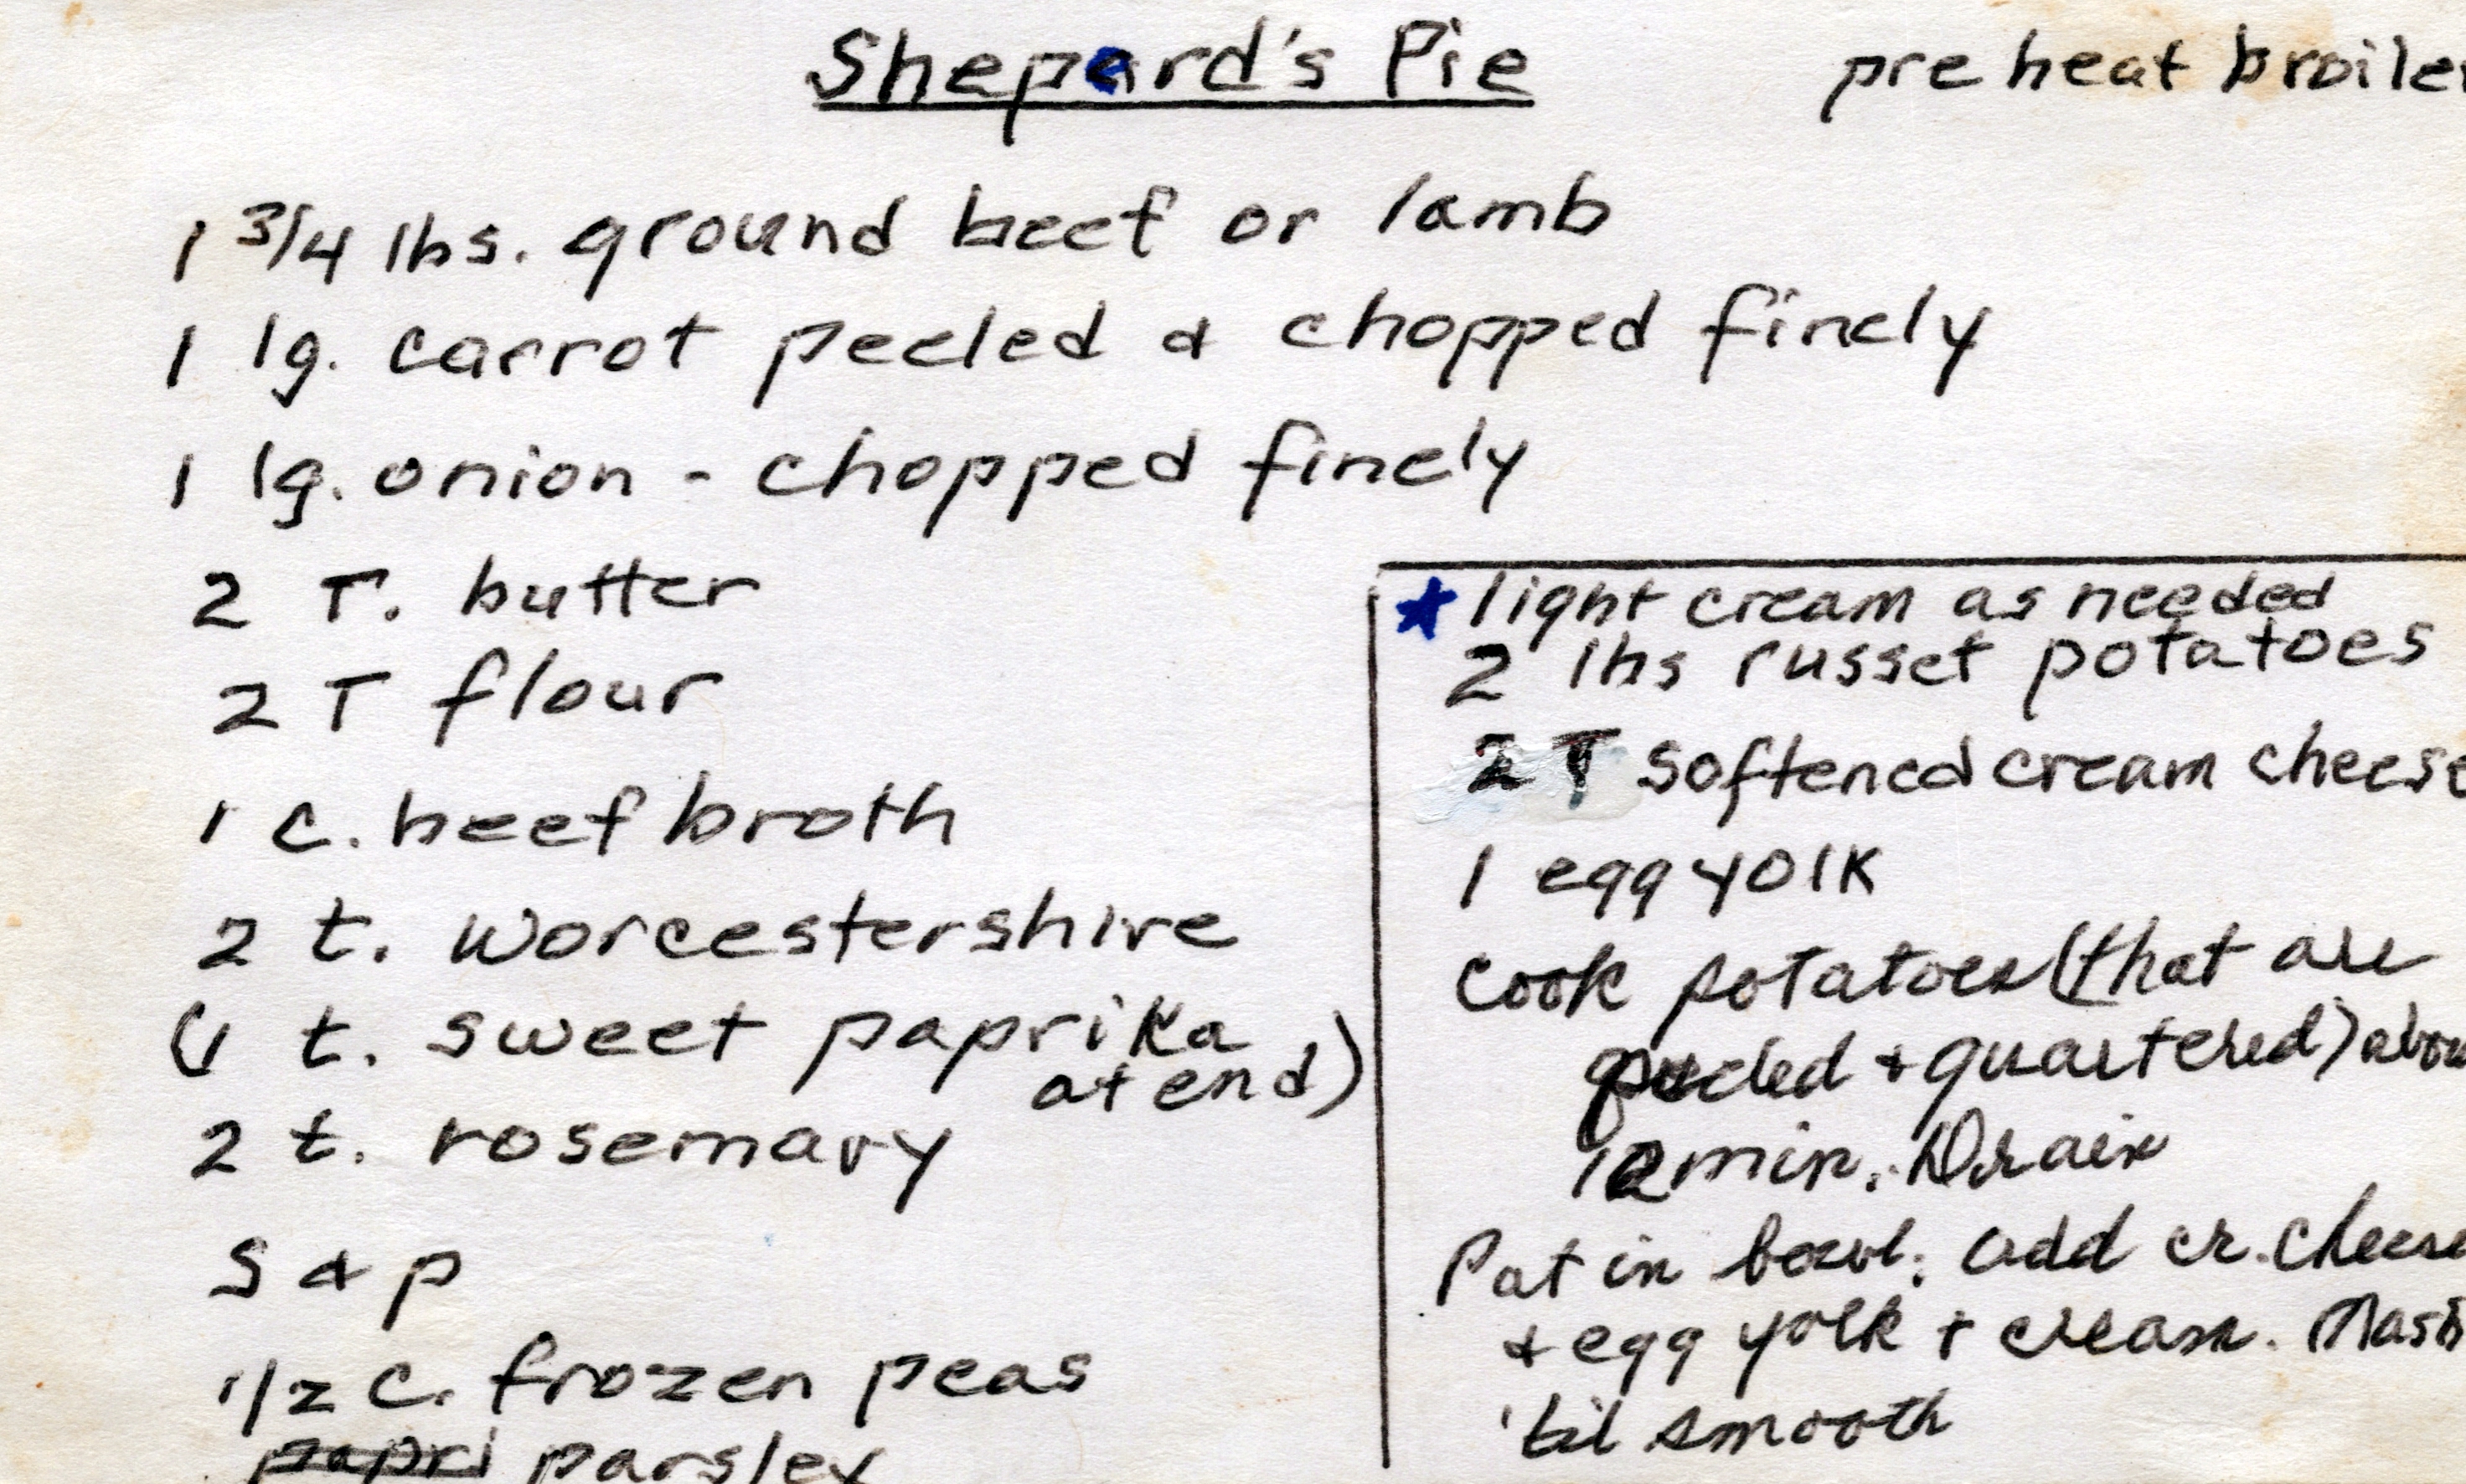 Shepard's Pie
preheat broiler
1 3/4 lbs. ground beef or lamb
1 lg. carrot peeled & chopped finely
1 lg. onion - chopped finely
2 T. butter
2 T flour
1 c. beef broth
2 t. worcestershire
(1 t. sweet paprika
at end)
2 t. rosemary
S & p
1/2 c. frozen peas
papri parsley
* light cream as needed
2 lbs russet potatoes
2 T softened cream cheese
1 egg yolk
Cook potatoes (that are
peeled + quartered) abou
min. Drain
Put in bowl. Add cr. cheese
& egg yolk + cream. Mash
'til smooth